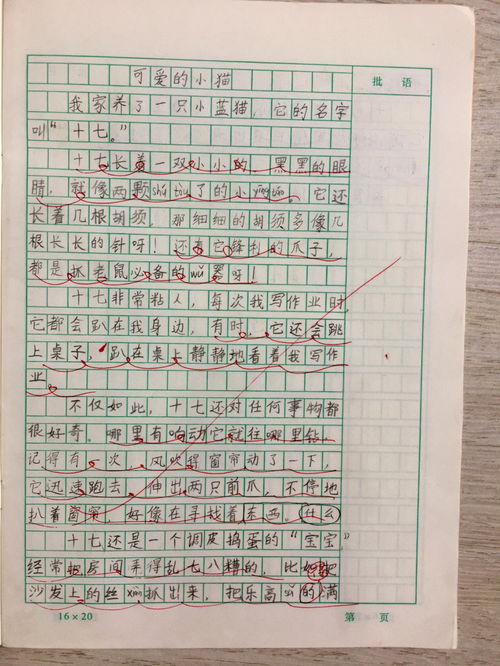 可爱的小猫
批语
我家养了一只小蓝猫，它的名字
叫“十七。”
十七长着一双小小的、黑黑的眼
睛，就像两颗shú tòu了的小yīng táo。它还
长着几根胡须，那细细的胡须多像几
根长长的针呀！还有它锋利的爪子，
都是抓老鼠必备的wǔ器呀！
十七非常粘人，每次我写作业时，
它都会趴在我身边，有时，它还会跳
上桌子，趴在桌上静静地看着我写作
业。
不仅如此，十七还对任何事物都
很好奇。哪里有响动它就往哪里钻。
记得有一次，风吹得窗帘动了一下，
它迅速跑去，伸出两只前爪，不停地
扒着窗帘，好像在寻找着东西。什么
十七还是一个调皮捣蛋的“宝宝”，
经常把房间弄得乱七八糟的，比如把
沙发上的丝xiàn抓出来，把乐高的满
16×20
第 页